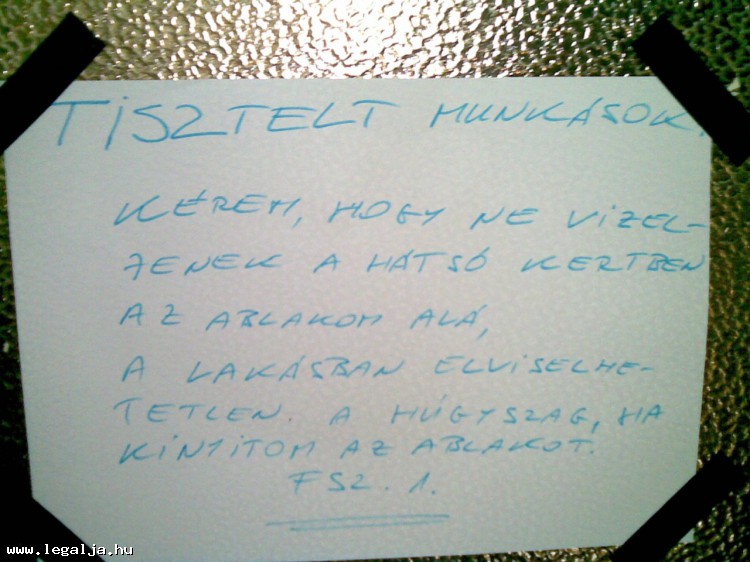 TISZTELT MUNKÁSOK.
KÉREM, HOGY NE VIZEL-
JENEK A HÁTSÓ KERTBEN
AZ ABLAKOM ALÁ,
A LAKÁSBAN ELVISELHE-
TETLEN. A HÚGYSZAG, HA
KINYITOM AZ ABLAKOT.
FSZ. 1.
www.legalja.hu